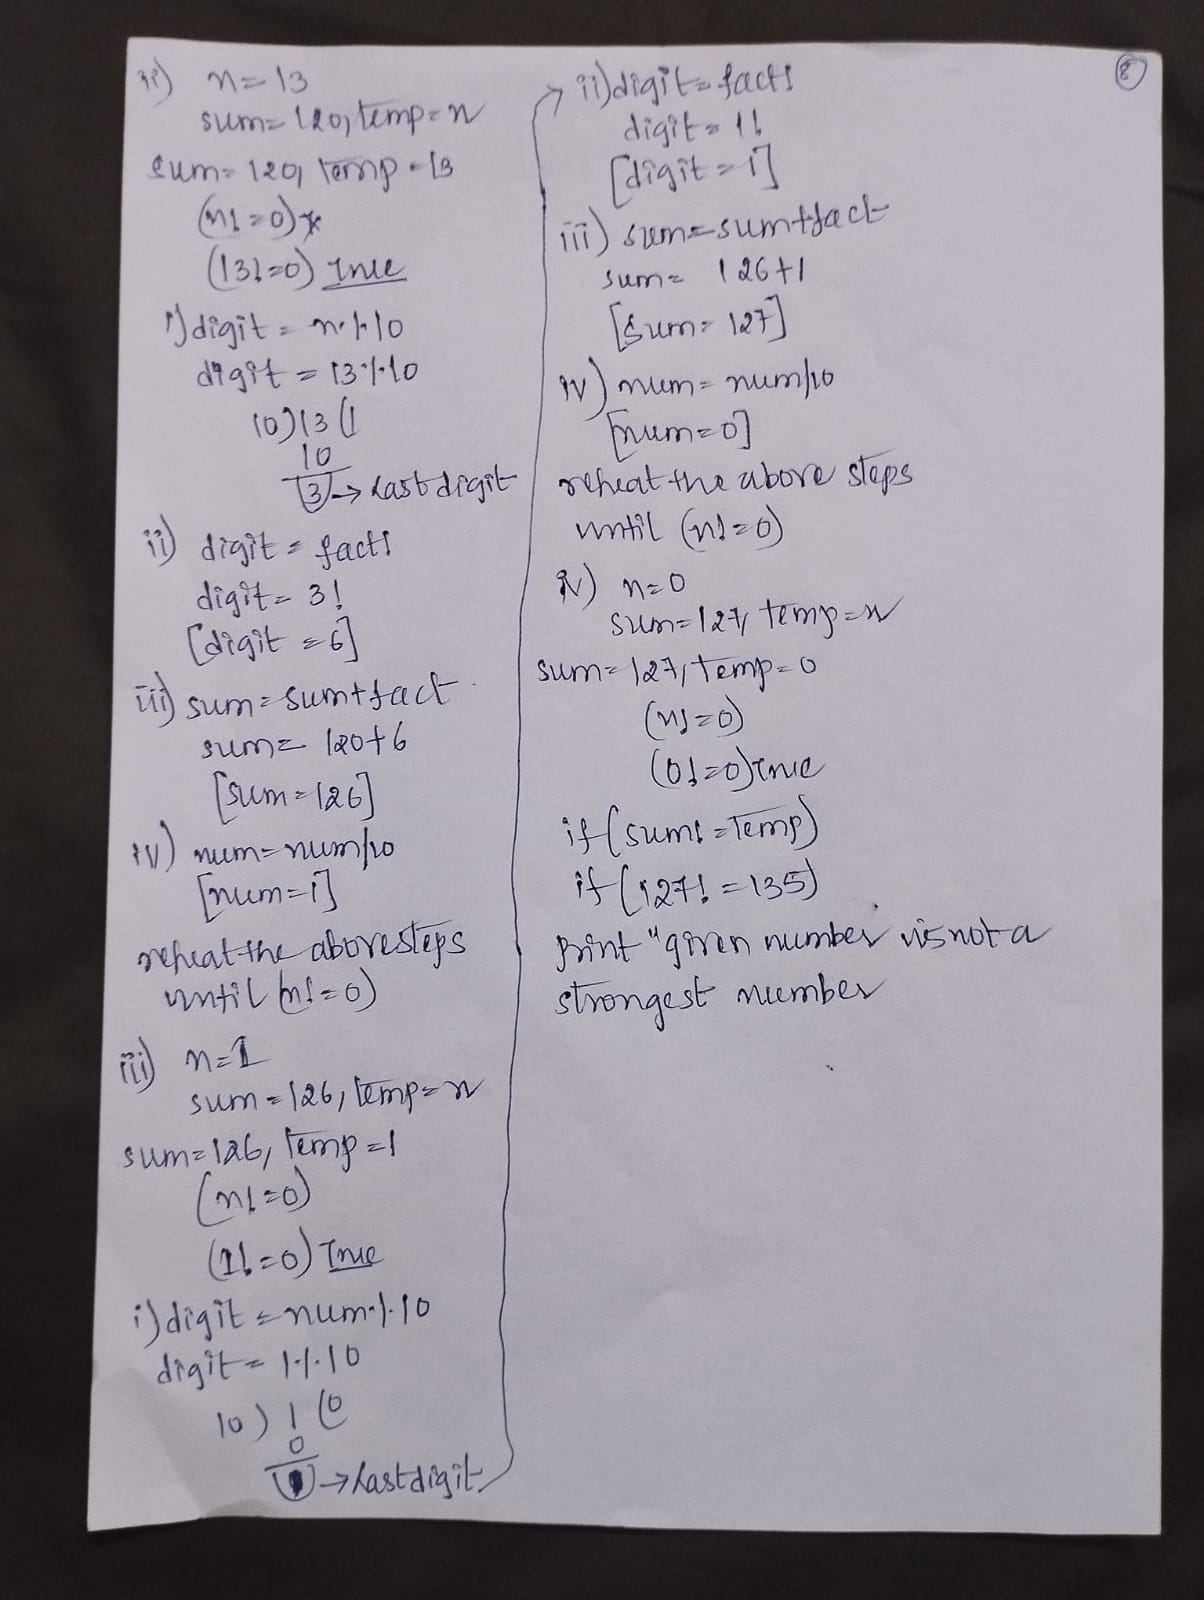 8
ii) n=13
sum=120, temp=n
sum=120, temp=13
(n!=0)
(13!=0) True
i) digit = n%10
digit = 13%10
10)13(1
10
3 → Last digit
ii) digit = fact!
digit = 3!
[digit =6]
iii) sum=sum+fact
sum= 120+6
[sum=126]
iv) num=num/10
[num=1]
repeat the above steps
until (n!=0)
iii) n=1
sum=126, temp=n
sum=126, temp=1
(n!=0)
(1!=0) True
i) digit =num%10
digit= 1%10
10) 1 (0
0
1 → Last digit
ii) digit=fact!
digit=1!
[digit=1]
iii) sum=sum+fact
sum= 126+1
[sum=127]
iv) num=num/10
[num=0]
repeat the above steps
until (n!=0)
iv) n=0
sum=127, temp=n
sum=127, temp=0
(n!=0)
(0!=0) True
if(sum!=Temp)
if(127!=135)
Print "given number is not a
strongest number